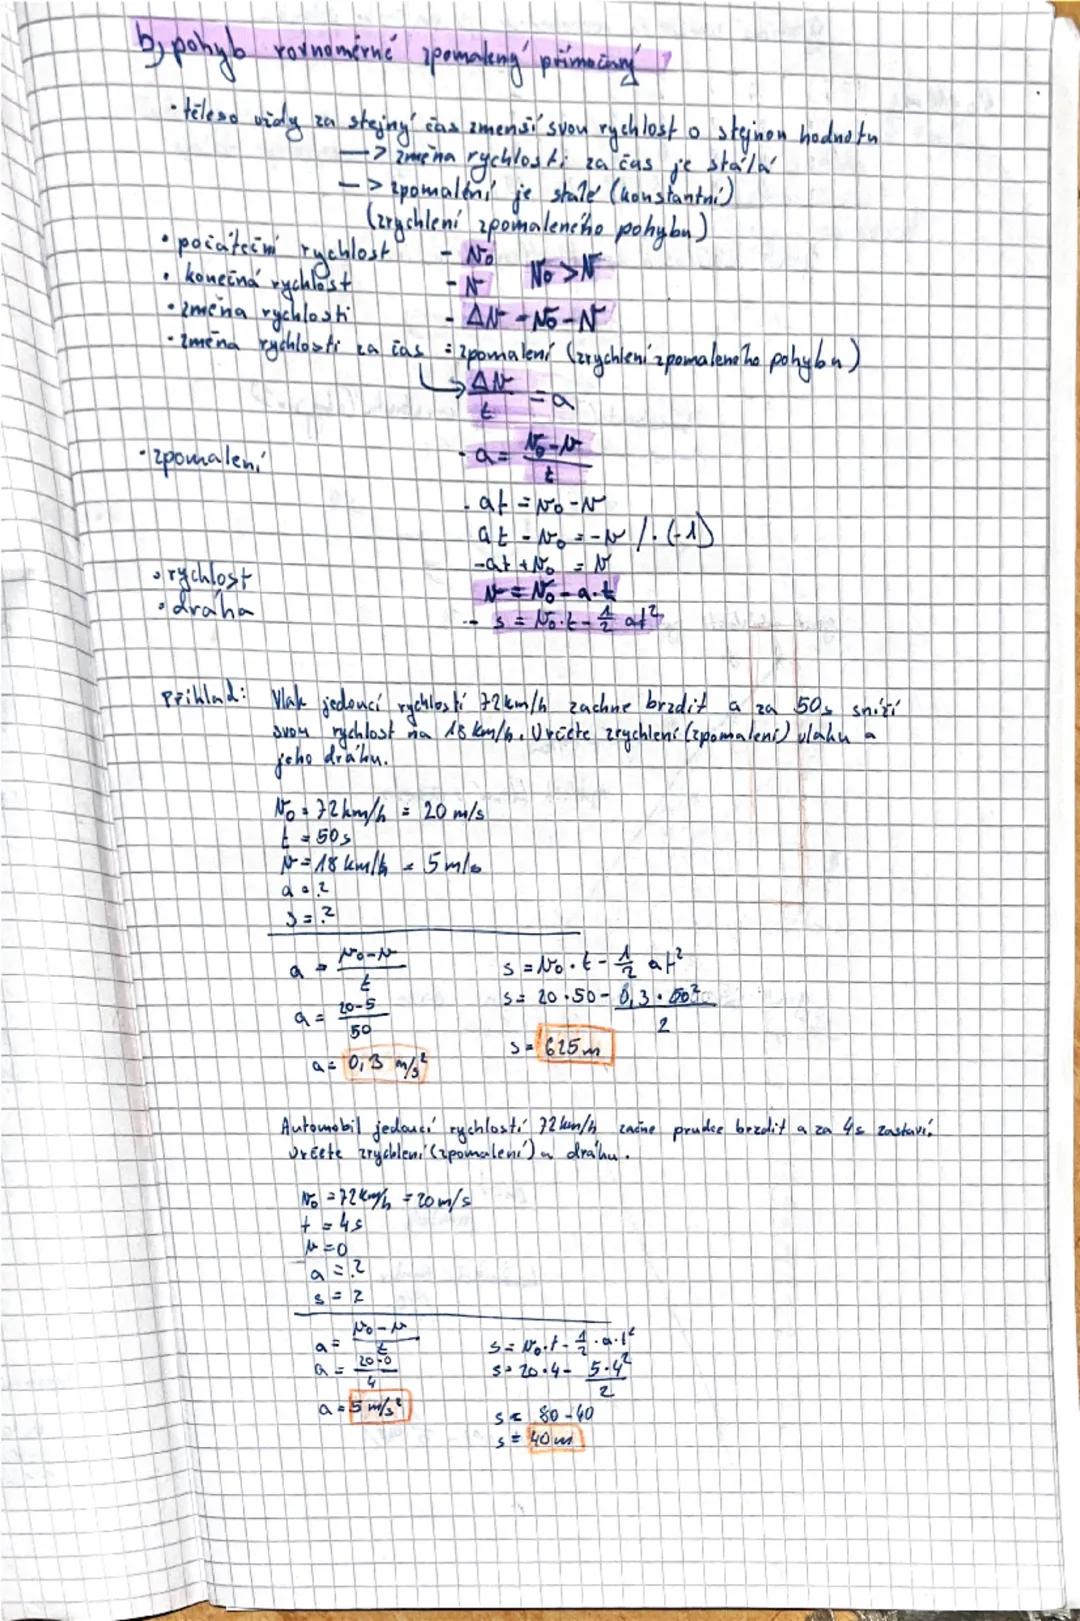 b) pohyb rovnoměrně zpomalený přímočarý
· těleso vždy za stejný čas zmenší svou rychlost o stejnou hodnotu
—> změna rychlosti za čas je stálá
—> zpomalení je stálé (konstantní)
(zrychlení zpomaleného pohybu)
· počáteční rychlost - v₀
v₀ > v
· konečná rychlost - v
· změna rychlosti - Δv = v₀ - v
· změna rychlosti za čas = zpomalení (zrychlení zpomaleného pohybu)
↳ Δv/t = a
· zpomalení - a = (v₀ - v)/t
- at = v₀ - v
at - v₀ = -v /·(-1)
-at + v₀ = v
· rychlost v = v₀ - a·t
· dráha - s = v₀·t - 1/2 at²
Příklad: Vlak jedoucí rychlostí 72 km/h zachne brzdit a za 50s sníží
svou rychlost na 18 km/h. Určete zrychlení (zpomalení) vlaku a
jeho dráhu.
v₀ = 72 km/h = 20 m/s
t = 50s
v = 18 km/h = 5 m/s
a = ?
s = ?
a = (v₀ - v)/t
s = v₀·t - 1/2 at²
a = (20-5)/50
s = 20·50 - (0,3·50²)/2
a = 0,3 m/s²
s = 625 m
Automobil jedoucí rychlostí 72 km/h začne prudce brzdit a za 4s zastaví.
Určete zrychlení (zpomalení) a dráhu.
v₀ = 72 km/h = 20 m/s
t = 4s
v = 0
a = ?
s = ?
a = (v₀ - v)/t
s = v₀·t - 1/2·a·t²
a = (20-0)/4
s = 20·4 - (5·4²)/2
a = 5 m/s²
s = 80 - 40
s = 40 m